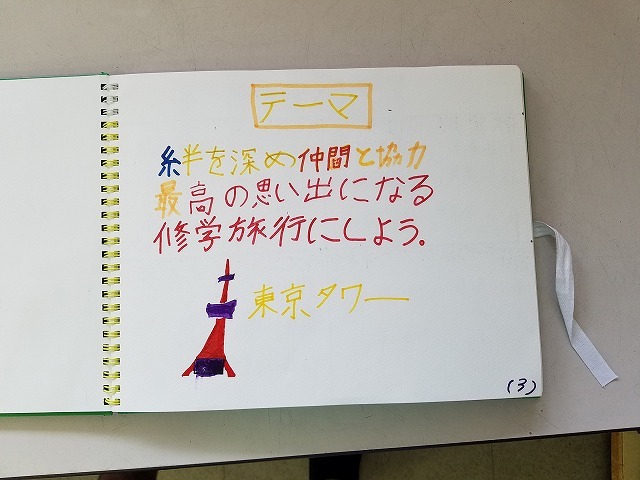 テーマ
絆を深め仲間と協力
最高の思い出になる
修学旅行にしよう。
東京タワー
(3)